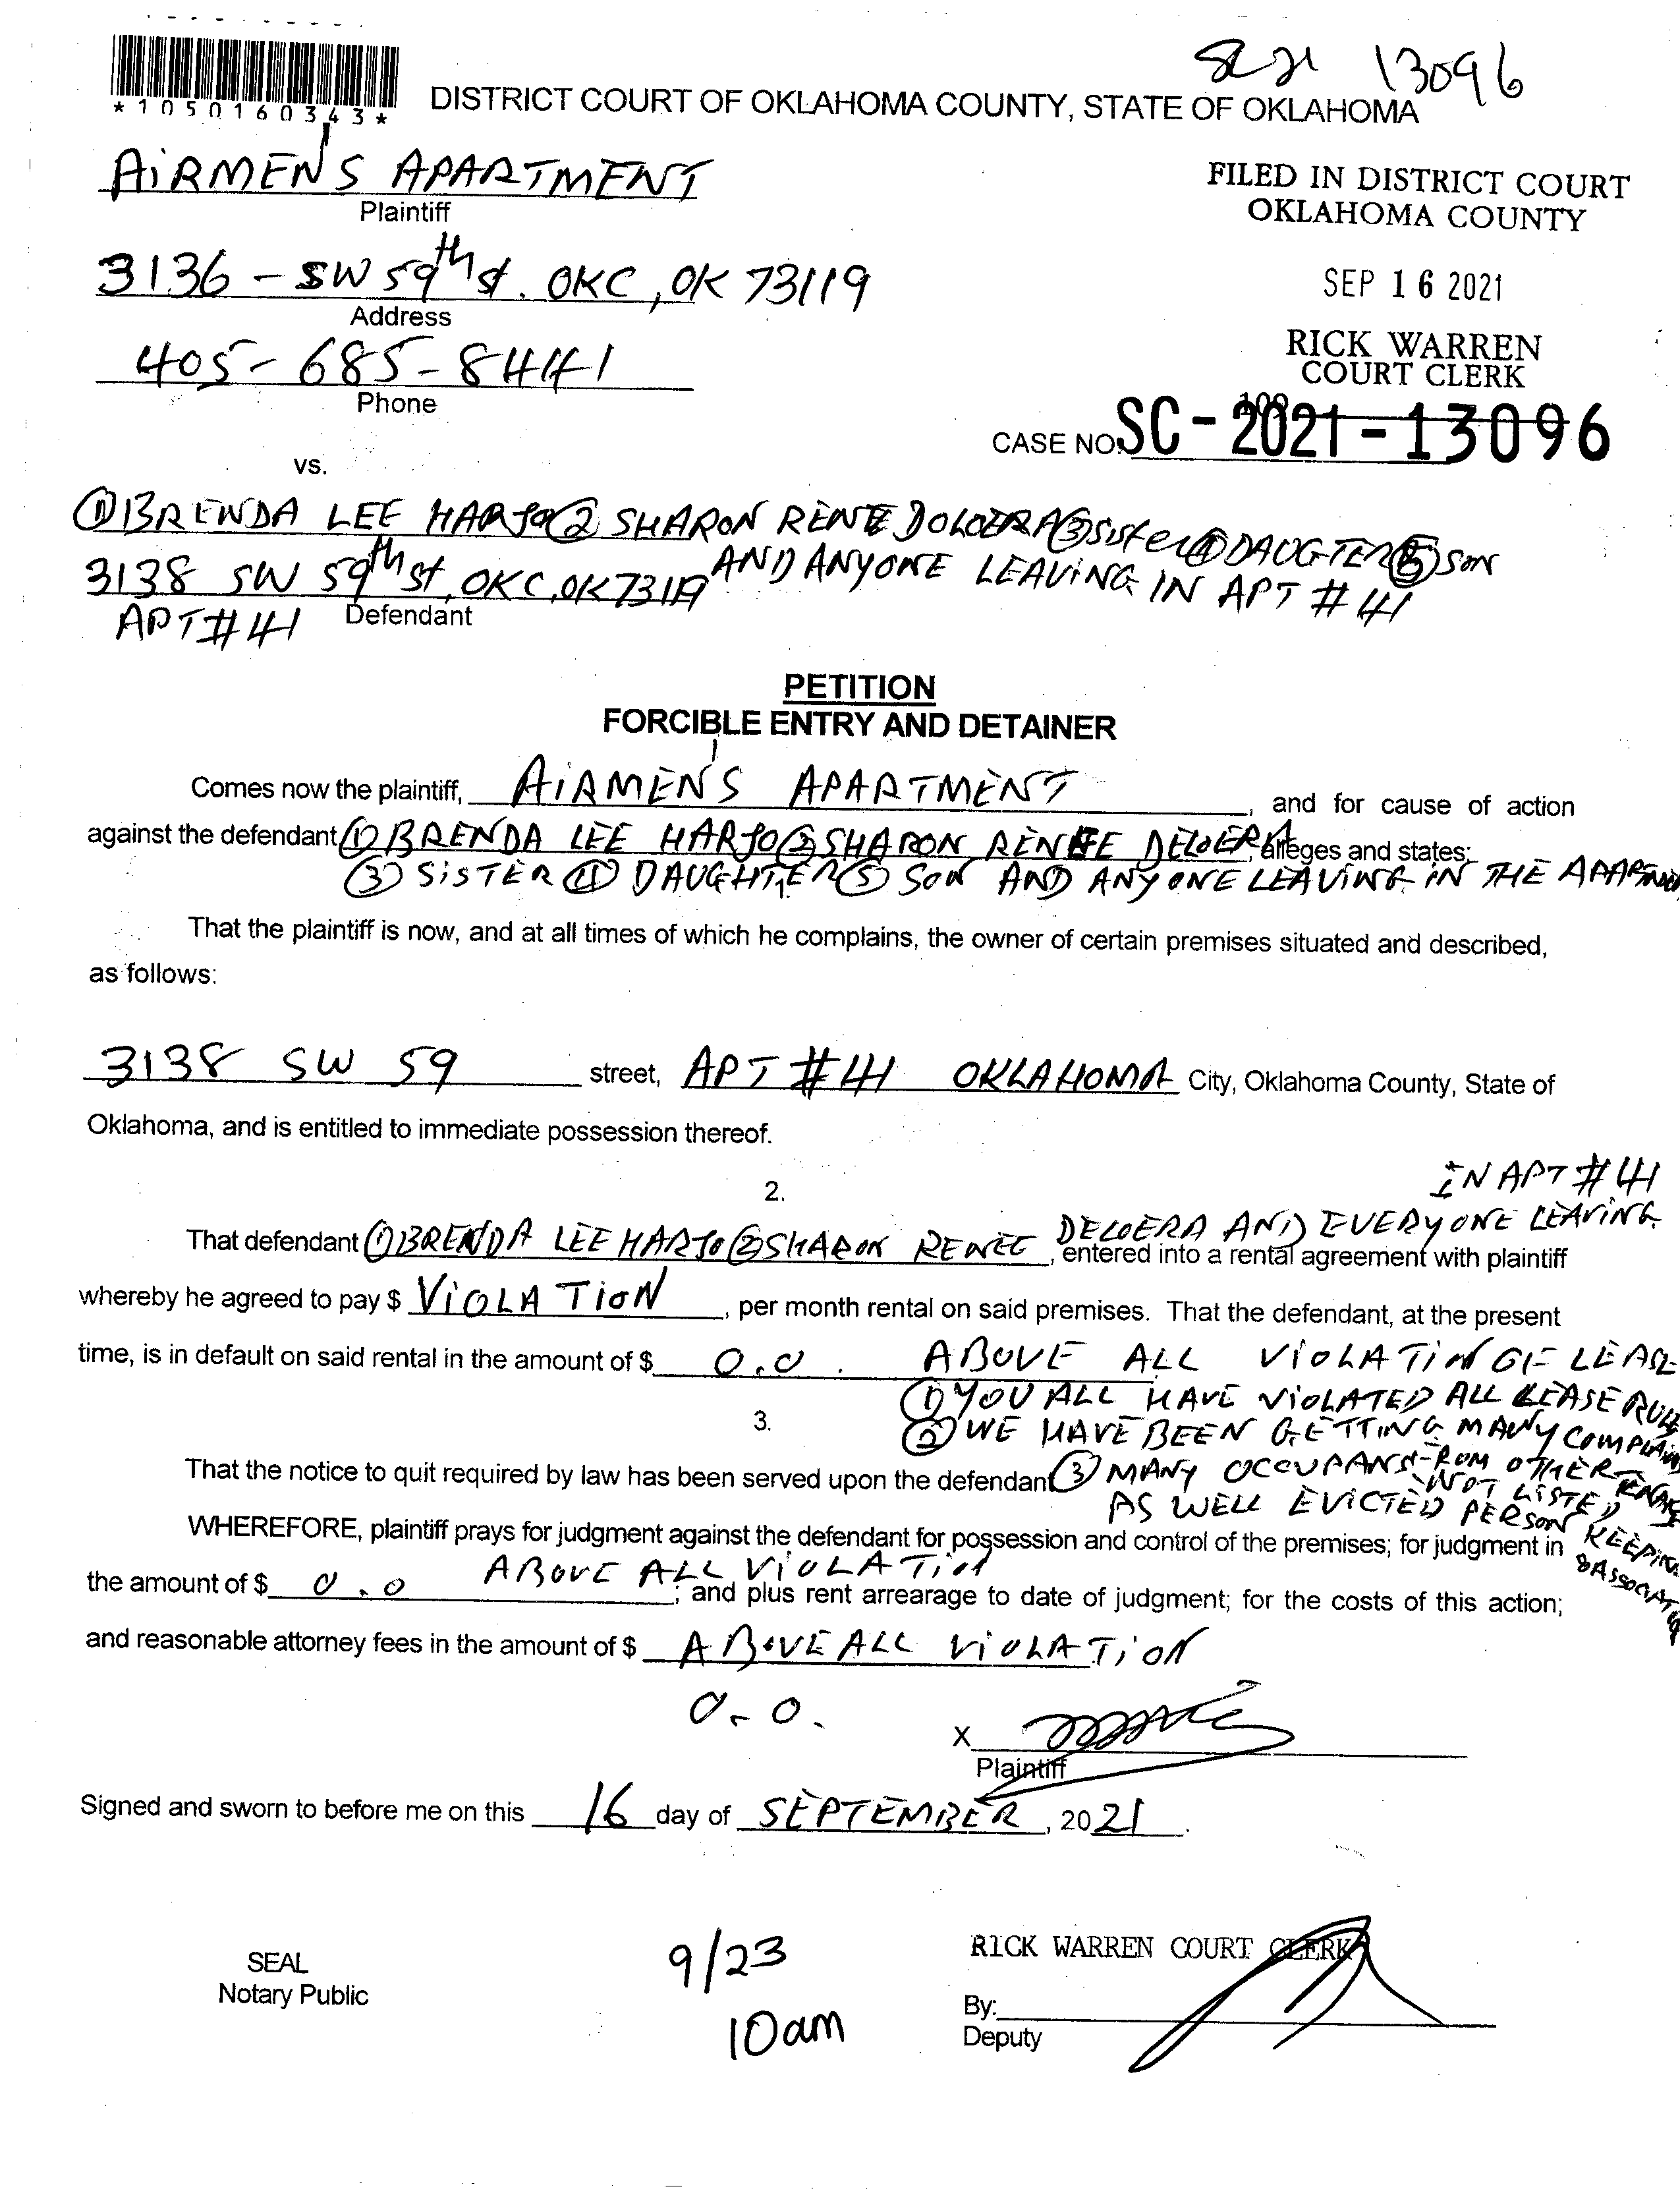 SC 21 13096
*1050160343*
DISTRICT COURT OF OKLAHOMA COUNTY, STATE OF OKLAHOMA
AiRMEN'S APARTMENT
Plaintiff
FILED IN DISTRICT COURT
OKLAHOMA COUNTY
3136 - SW 59th st. OKC, OK 73119
Address
SEP 16 2021
405-685-8441
Phone
RICK WARREN
COURT CLERK
109
CASE NO. SC-2021-13096
vs.
① BRENDA LEE HARJO ② SHARON RENE DOLOERA ③ Sister ④ DAUGTER ⑤ SON
3138 SW 59th st, OKC, OK 73119 AND ANYONE LEAViNG IN APT # 41
APT # 41 Defendant
PETITION
FORCIBLE ENTRY AND DETAINER
Comes now the plaintiff, AiRMEN'S APARTMENT, and for cause of action
against the defendant ① BRENDA LEE HARJO ② SHARON RENEE DELOERA, alleges and states:
③ SiSTER ④ DAUGHTER ⑤ SON AND ANYONE LEAViNG iN THE
That the plaintiff is now, and at all times of which he complains, the owner of certain premises situated and described,
as follows:
3138 SW 59 street, APT # 41 OKLAHOMA City, Oklahoma County, State of
Oklahoma, and is entitled to immediate possession thereof.
2.
iN APT # 41
That defendant ① BRENDA LEE HARJO ② SHARON RENEE DELOERA AND EVERYONE LEAViNG, entered into a rental agreement with plaintiff
whereby he agreed to pay $ ViOLATiON, per month rental on said premises. That the defendant, at the present
time, is in default on said rental in the amount of $ 0.0. ABOVE ALL ViOLATiN OF LEASE
① YOU ALL HAVE ViOLATED ALL LEASE RULE
3.
② WE HAVE BEEN GETTiNG MANY
That the notice to quit required by law has been served upon the defendant ③ MANY FROM OTHER
NOT LiSTED
AS WELL EViCTED PERSON KEEPiNG
WHEREFORE, plaintiff prays for judgment against the defendant for possession and control of the premises; for judgment in
the amount of $ 0.0 ABOVE ALL ViOLATiON; and plus rent arrearage to date of judgment; for the costs of this action;
and reasonable attorney fees in the amount of $ ABOVE ALL ViOLATiON
0.0.
X
Plaintiff
Signed and sworn to before me on this 16 day of SEPTEMBER, 2021.
SEAL
Notary Public
9/23
10am
RICK WARREN COURT CLERK
By:
Deputy